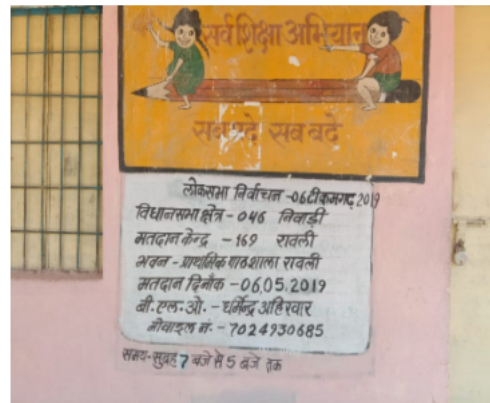 सर्व शिक्षा अभियान
सब पढ़े सब बढ़े
लोकसभा निर्वाचन -06 टीकमगढ़ 2019
विधानसभा क्षेत्र - 046 निवाड़ी
मतदान केन्द्र - 169 रावली
भवन - प्राथमिक पाठशाला रावली
मतदान दिनाँक - 06.05.2019
बी.एल.ओ. - धर्मेन्द्र अहिरवार
मोबाइल नं. - 7024930685
समय - सुबह 7 बजे से 5 बजे तक